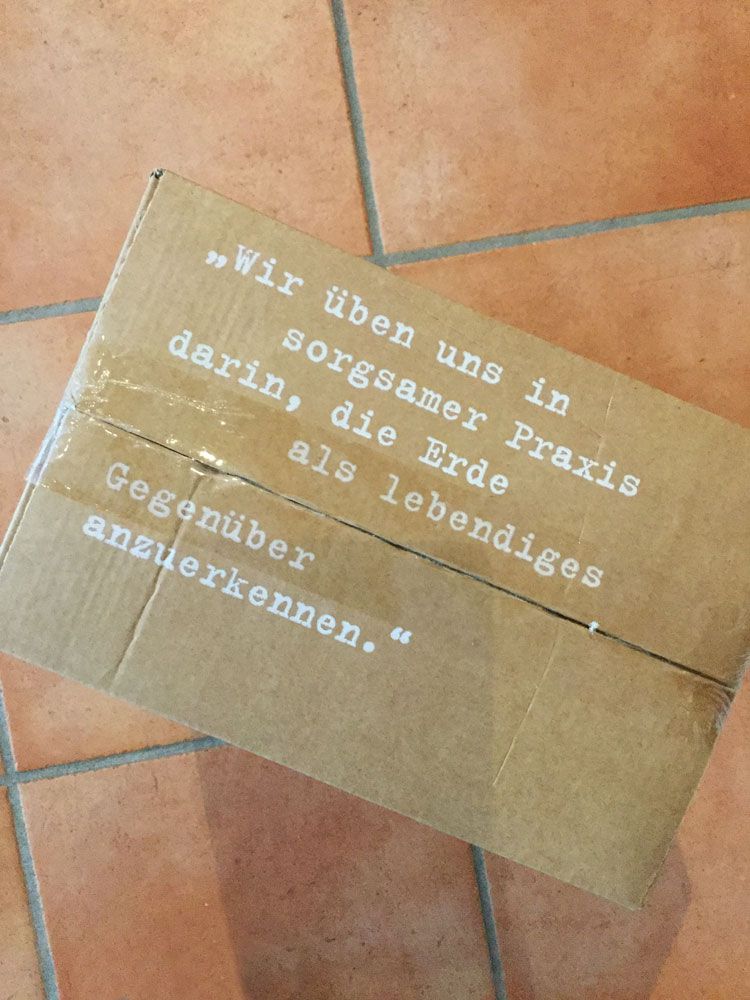 „Wir üben uns in
sorgsamer Praxis
darin, die Erde
als lebendiges
Gegenüber
anzuerkennen.“